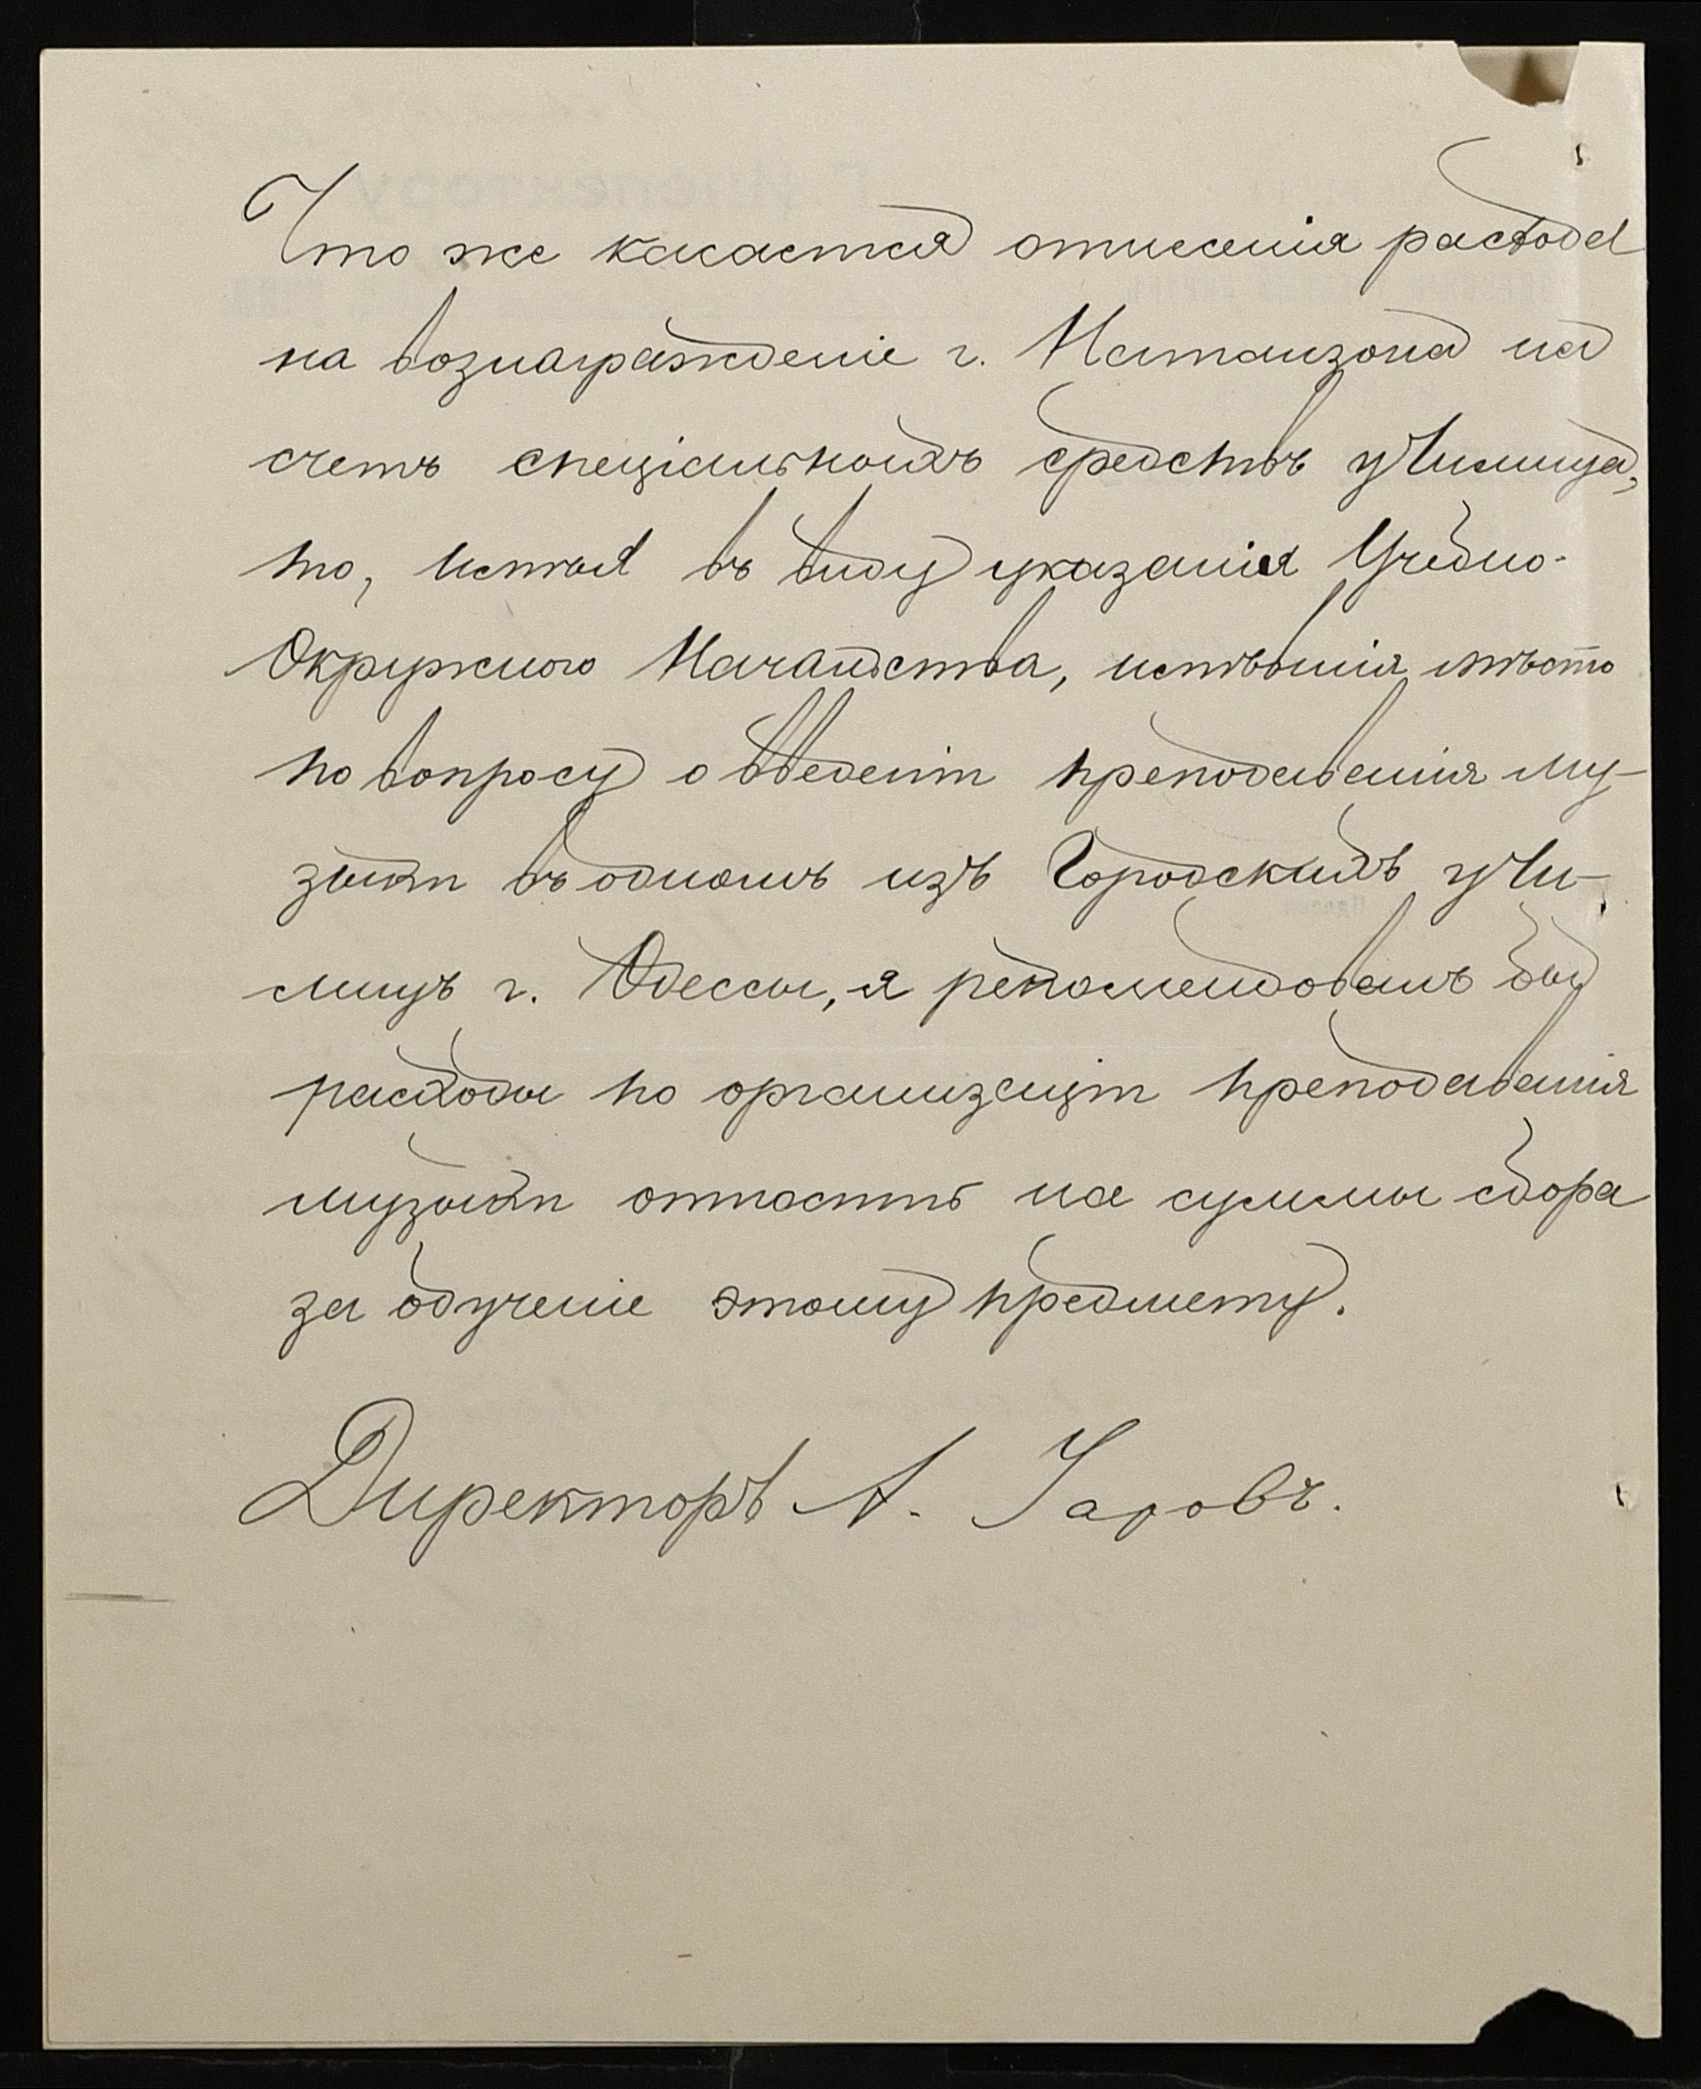 Что же касается отнесенія расхода
на вознагражденіе г. Натанзона на
счетъ спеціальныхъ средствъ училища,
то, имѣя въ виду указанія Учебно-
Окружного Начальства, имѣвшія мѣсто
по вопросу о введеніи преподаванія му-
зыки въ одномъ изъ Городскихъ учи-
лищъ г. Одессы, я рекомендовалъ бы
расходы по организаціи преподаванія
музыки отнести на суммы сбора
за обученіе этому предмету.
Директоръ А.